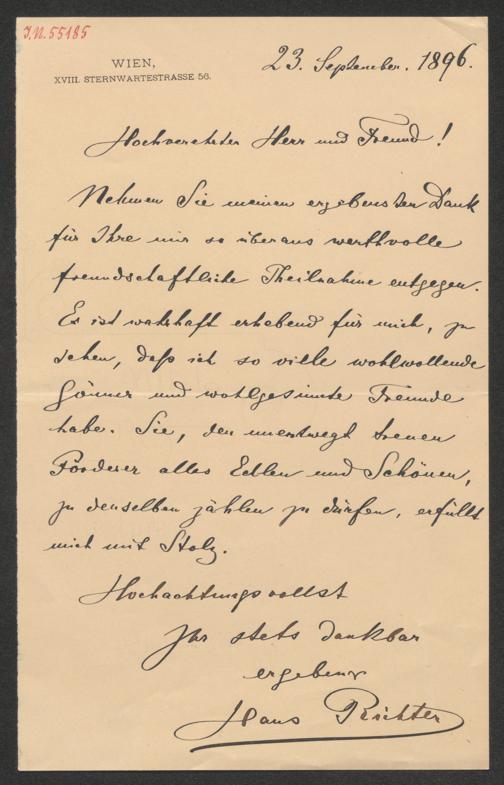 J.N. 55185
WIEN,
XVIII. STERNWARTESTRASSE 56.
23. September. 1896.
Hochverehrter Herr und Freund!
Nehmen Sie meinen ergebensten Dank
für Ihre mir so überaus werthvolle
freundschaftliche Theilnahme entgegen.
Es ist wahrhaft erhebend für mich, zu
sehen, daß ich so viele wohlwollende
Gönner und wohlgesinnte Freunde
habe. Sie, den unentwegt treuen
Förderer alles Edlen und Schönen,
zu denselben zählen zu dürfen, erfüllt
mich mit Stolz.
Hochachtungsvollst
Ihr stets dankbar
ergebener
Hans Richter